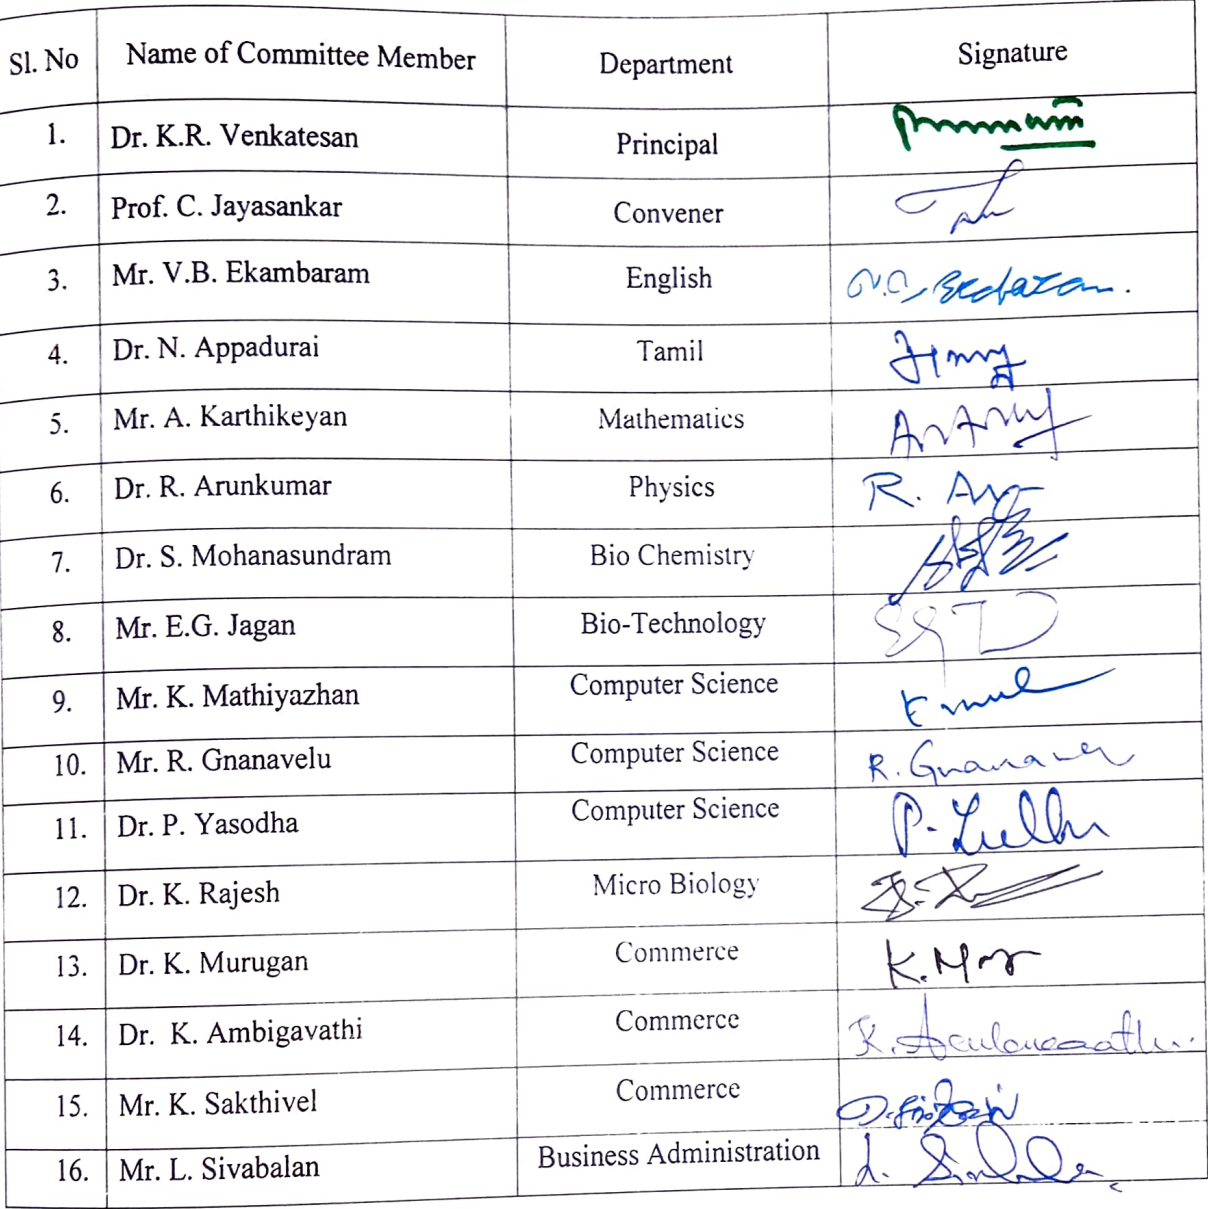 Sl. No Name of Committee Member Department Signature
1. Dr. K.R. Venkatesan Principal
2. Prof. C. Jayasankar Convener
3. Mr. V.B. Ekambaram English
4. Dr. N. Appadurai Tamil
5. Mr. A. Karthikeyan Mathematics
6. Dr. R. Arunkumar Physics R.
7. Dr. S. Mohanasundram Bio Chemistry
8. Mr. E.G. Jagan Bio-Technology
9. Mr. K. Mathiyazhan Computer Science
10. Mr. R. Gnanavelu Computer Science R. Gnanavel
11. Dr. P. Yasodha Computer Science P.
12. Dr. K. Rajesh Micro Biology
13. Dr. K. Murugan Commerce K.
14. Dr. K. Ambigavathi Commerce K.
15. Mr. K. Sakthivel Commerce
16. Mr. L. Sivabalan Business Administration L.